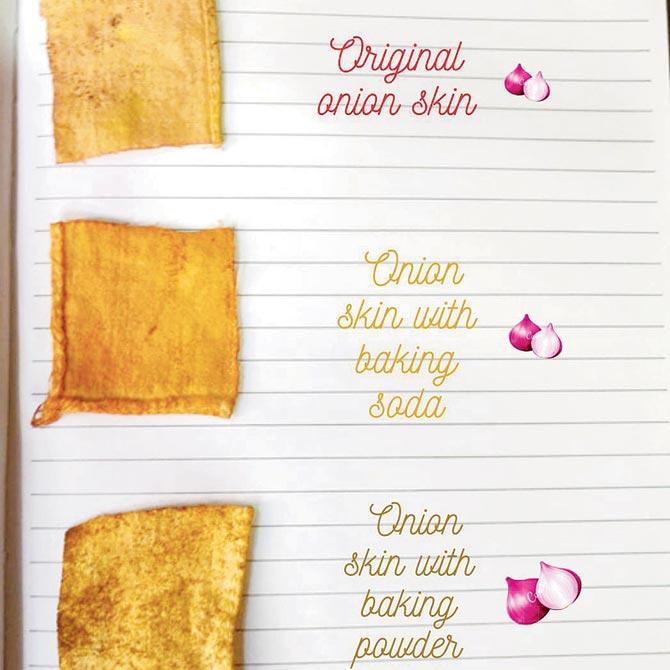 Original
onion skin
Onion
skin with
baking
soda
Onion
skin with
baking
powder